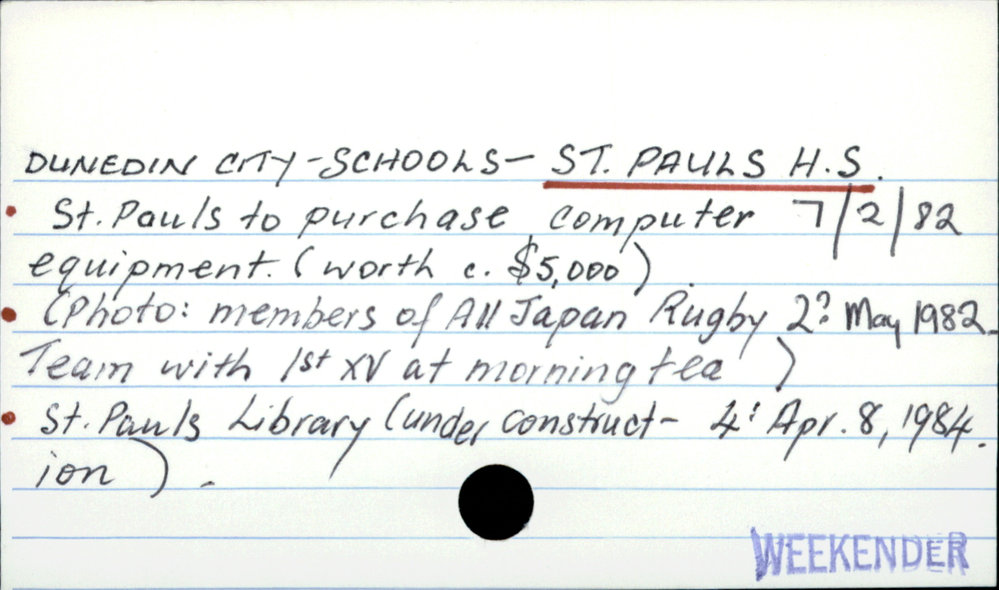 DUNEDIN CITY - SCHOOLS - ST. PAULS H.S.
St. Pauls to purchase computer 7/2/82
equipment. (worth c. $5,000)
(Photo: members of All Japan Rugby 2? May 1982.
Team with 1st XV at morning tea)
St. Pauls Library (under construct- 4: Apr. 8, 1984.
ion).
WEEKENDER